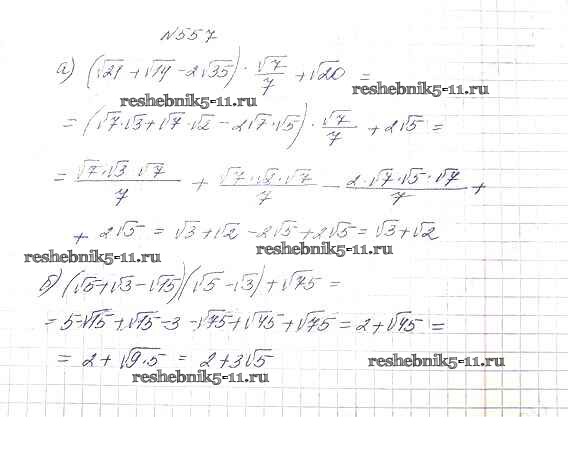 №557
а) (√21 + √14 - 2√35) · √7/7 + √20 =
reshebnik5-11.ru reshebnik5-11.ru
= (√7·√3 + √7·√2 - 2√7·√5) · √7/7 + 2√5 =
= √7·√3·√7/7 + √7·√2·√7/7 - 2·√7·√5·√7/7 +
+ 2√5 = √3 + √2 - 2√5 + 2√5 = √3 + √2
reshebnik5-11.ru reshebnik5-11.ru
б) (√5 + √3 - √15)(√5 - √3) + √75 =
= 5 - √15 + √15 - 3 - √75 + √45 + √75 = 2 + √45 =
= 2 + √9·5 = 2 + 3√5
reshebnik5-11.ru reshebnik5-11.ru